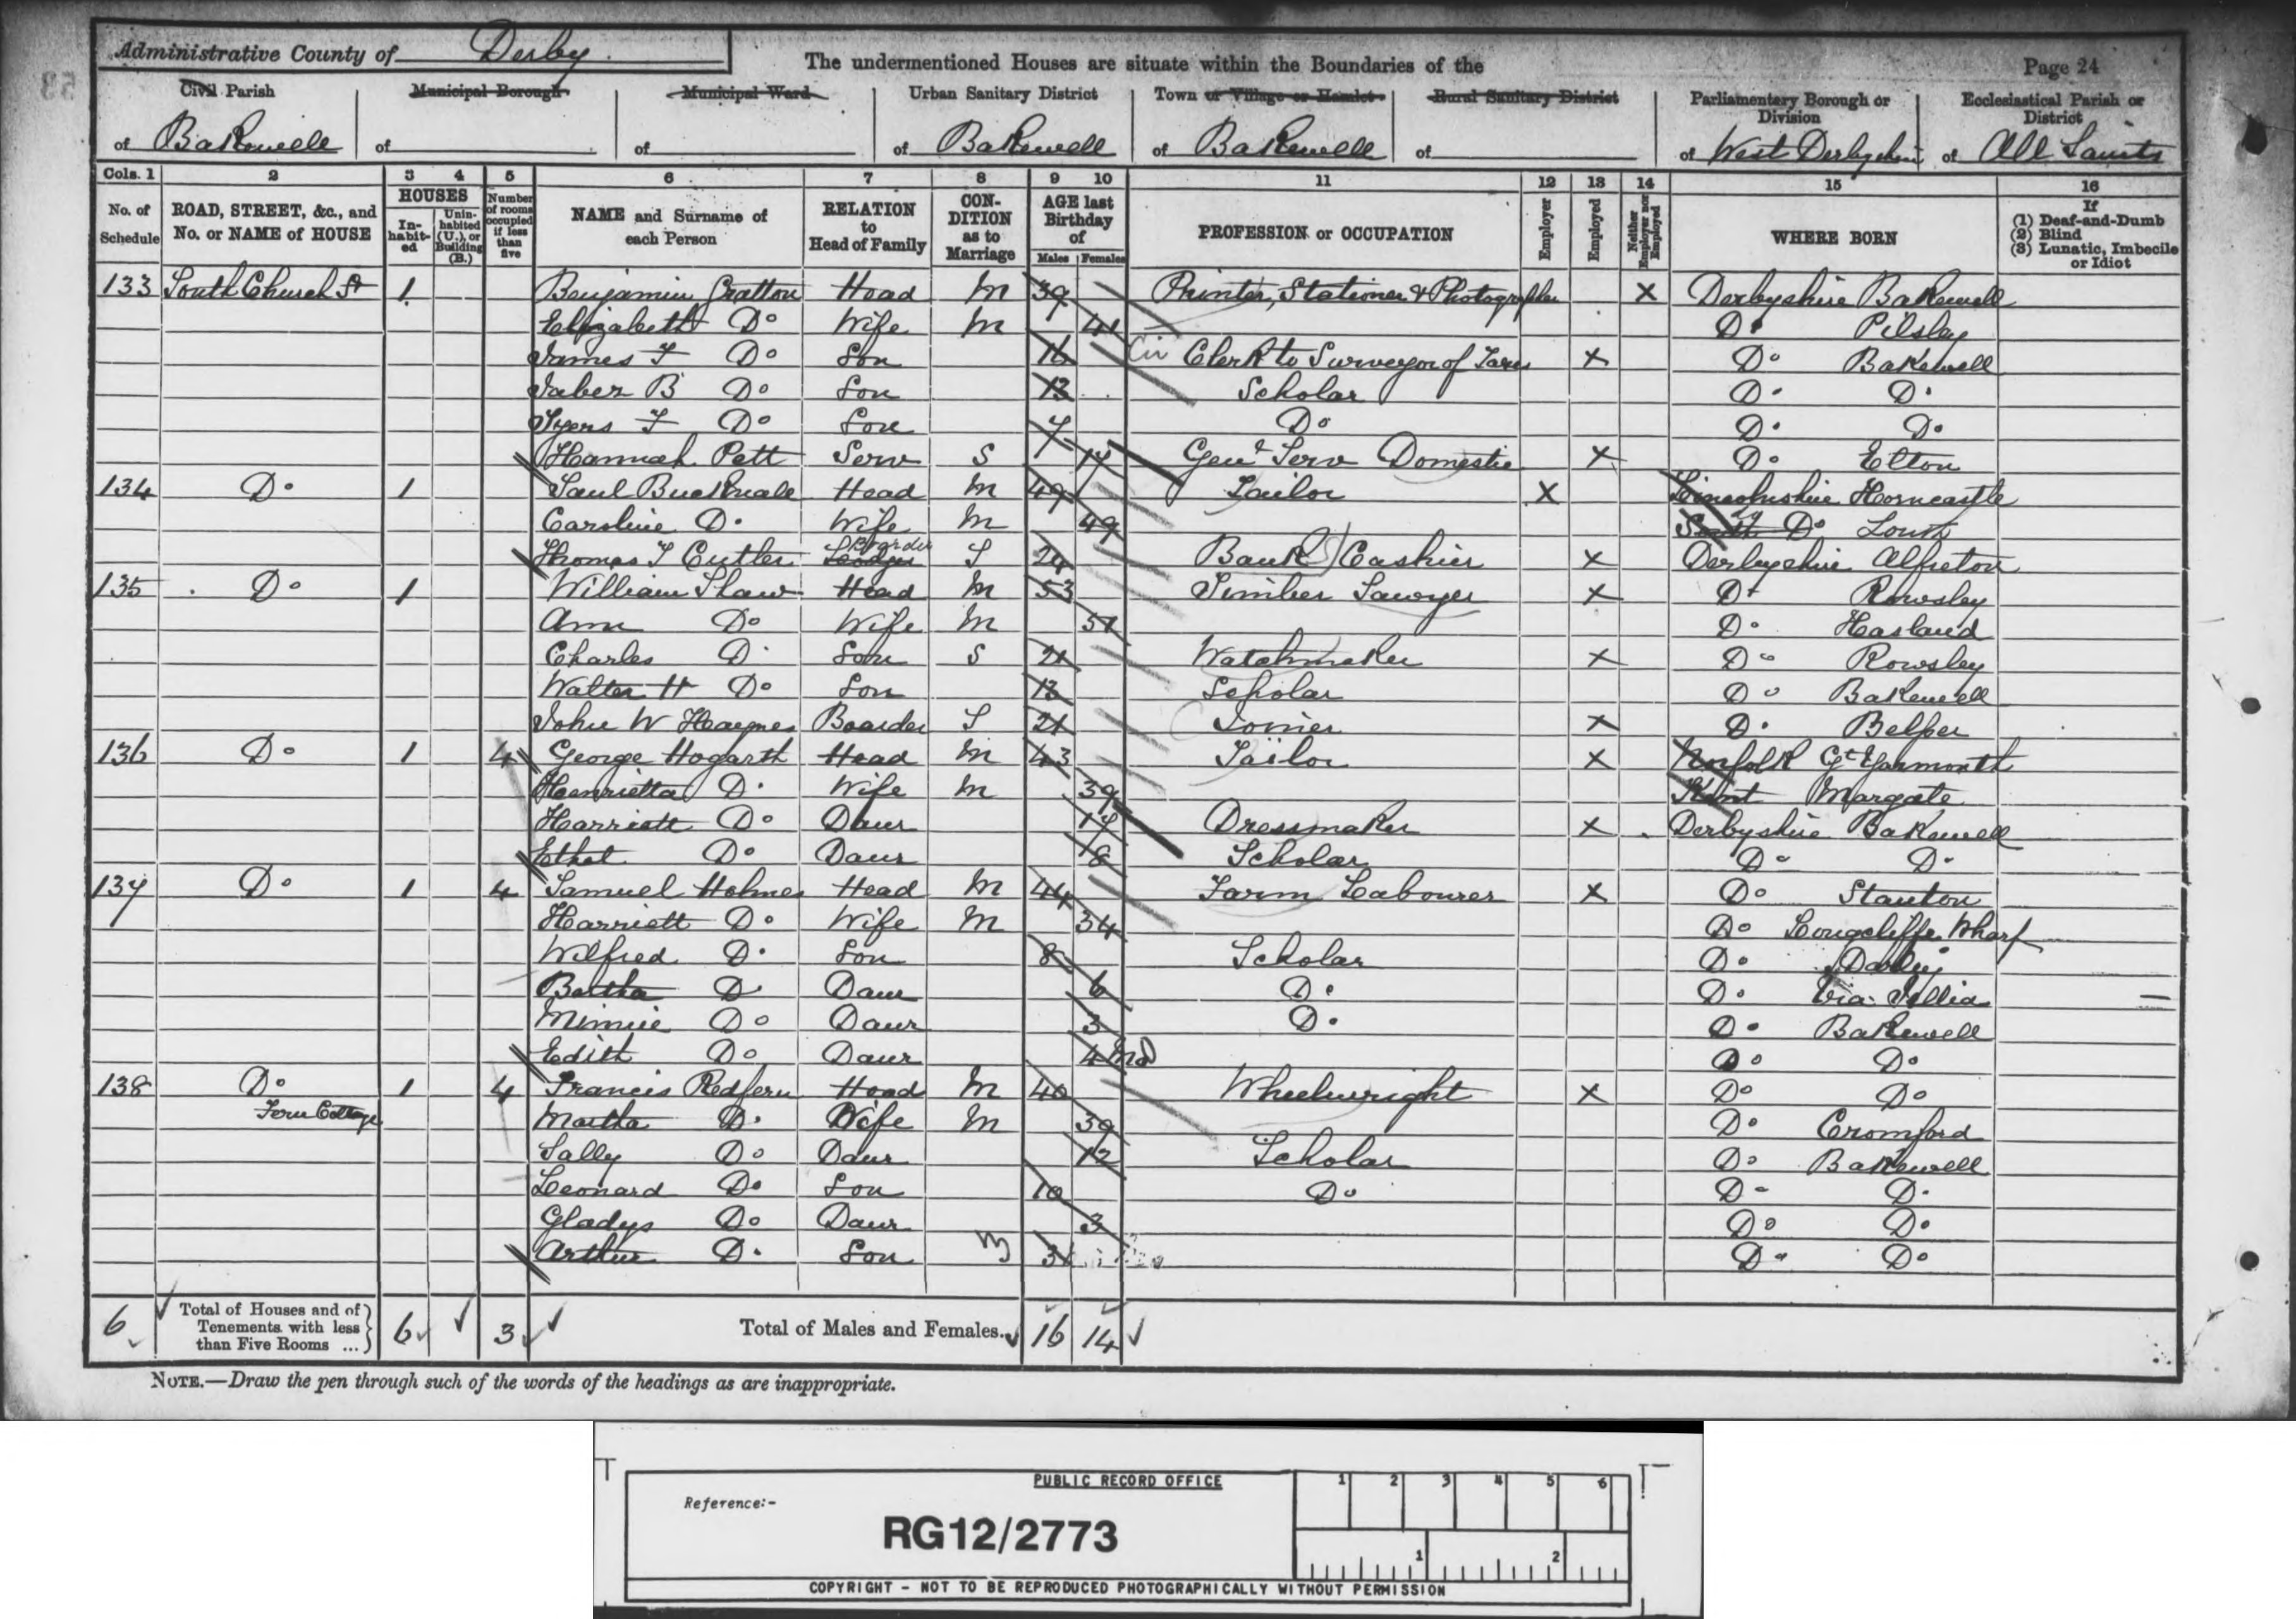 Administrative County of Derby
The undermentioned Houses are situate within the Boundaries of the
Page 24
Civil Parish of Bakewell
Municipal Borough of
Municipal Ward of
Urban Sanitary District of Bakewell
Town or Village or Hamlet of Bakewell
Rural Sanitary District of
Parliamentary Borough or Division of West Derbyshire
Ecclesiastical Parish or District of All Saints
Cols. 1 2 3 4 5 6 7 8 9 10 11 12 13 14 15 16
No. of Schedule
ROAD, STREET, &c., and No. or NAME of HOUSE
HOUSES
In-habit-ed
Unin-habited (U.), or Building (B.)
Number of rooms occupied if less than five
NAME and Surname of each Person
RELATION to Head of Family
CON-DITION as to Marriage
AGE last Birthday of
Males Females
PROFESSION or OCCUPATION
Employer
Employed
Neither Employer nor Employed
WHERE BORN
If
(1) Deaf-and-Dumb
(2) Blind
(3) Lunatic, Imbecile or Idiot
133 South Church St 1 Benjamin Gratton Head M 39 Printer, Stationer & Photographer X Derbyshire Bakewell
Elizabeth Do Wife M 41 Do Pilsley
James T Do Son 16 Clerk to Surveyor of Taxes X Do Bakewell
Jaber B Do Son 13 Scholar Do Do
Syers T Do Son 7 Do Do Do
Hannah Pett Serv S 17 Genl Serv Domestic X Do Elton
134 Do 1 Saul Bucknall Head M 49 Tailor X Lincolnshire Horncastle
Caroline Do Wife M 49 Do Louth
Thomas T Cutler Boarder S 29 Bank Cashier X Derbyshire Alfreton
135 Do 1 William Shaw Head M 53 Timber Sawyer X Do Rowsley
Ann Do Wife M 51 Do Hasland
Charles Do Son S 21 Watchmaker X Do Rowsley
Walter H Do Son 13 Scholar Do Bakewell
John W Haynes Boarder S 21 Joiner X Do Belper
136 Do 1 4 George Hogarth Head M 43 Tailor X Norfolk Gt Yarmouth
Henrietta Do Wife M 39 Kent Margate
Harriett Do Daur 17 Dressmaker X Derbyshire Bakewell
Ethel Do Daur 8 Scholar Do Do
137 Do 1 4 Samuel Holmes Head M 44 Farm Labourer X Do Stanton
Harriett Do Wife M 34 Do Longcliffe Wharf
Wilfred Do Son 8 Scholar Do Darley
Bertha Do Daur 6 Do Do Via Gellia
Minnie Do Daur 3 Do Do Bakewell
Edith Do Daur 4 Mo Do Do
138 Do 1 4 Francis Redfern Head M 40 Wheelwright X Do Do
Fern Cottage Martha Do Wife M 39 Do Cromford
Sally Do Daur 12 Scholar Do Bakewell
Leonard Do Son 10 Do Do Do
Gladys Do Daur 3 Do Do
Arthur Do Son 3 Do Do
6 Total of Houses and of Tenements with less than Five Rooms ... 6 3 Total of Males and Females... 16 14
NOTE.—Draw the pen through such of the words of the headings as are inappropriate.
PUBLIC RECORD OFFICE
1 2 3 4 5 6
Reference:-
RG12/2773
1 2
COPYRIGHT - NOT TO BE REPRODUCED PHOTOGRAPHICALLY WITHOUT PERMISSION